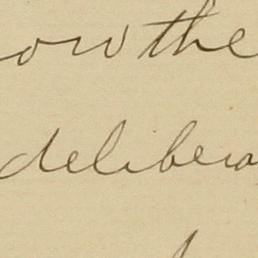 ow the
delibera